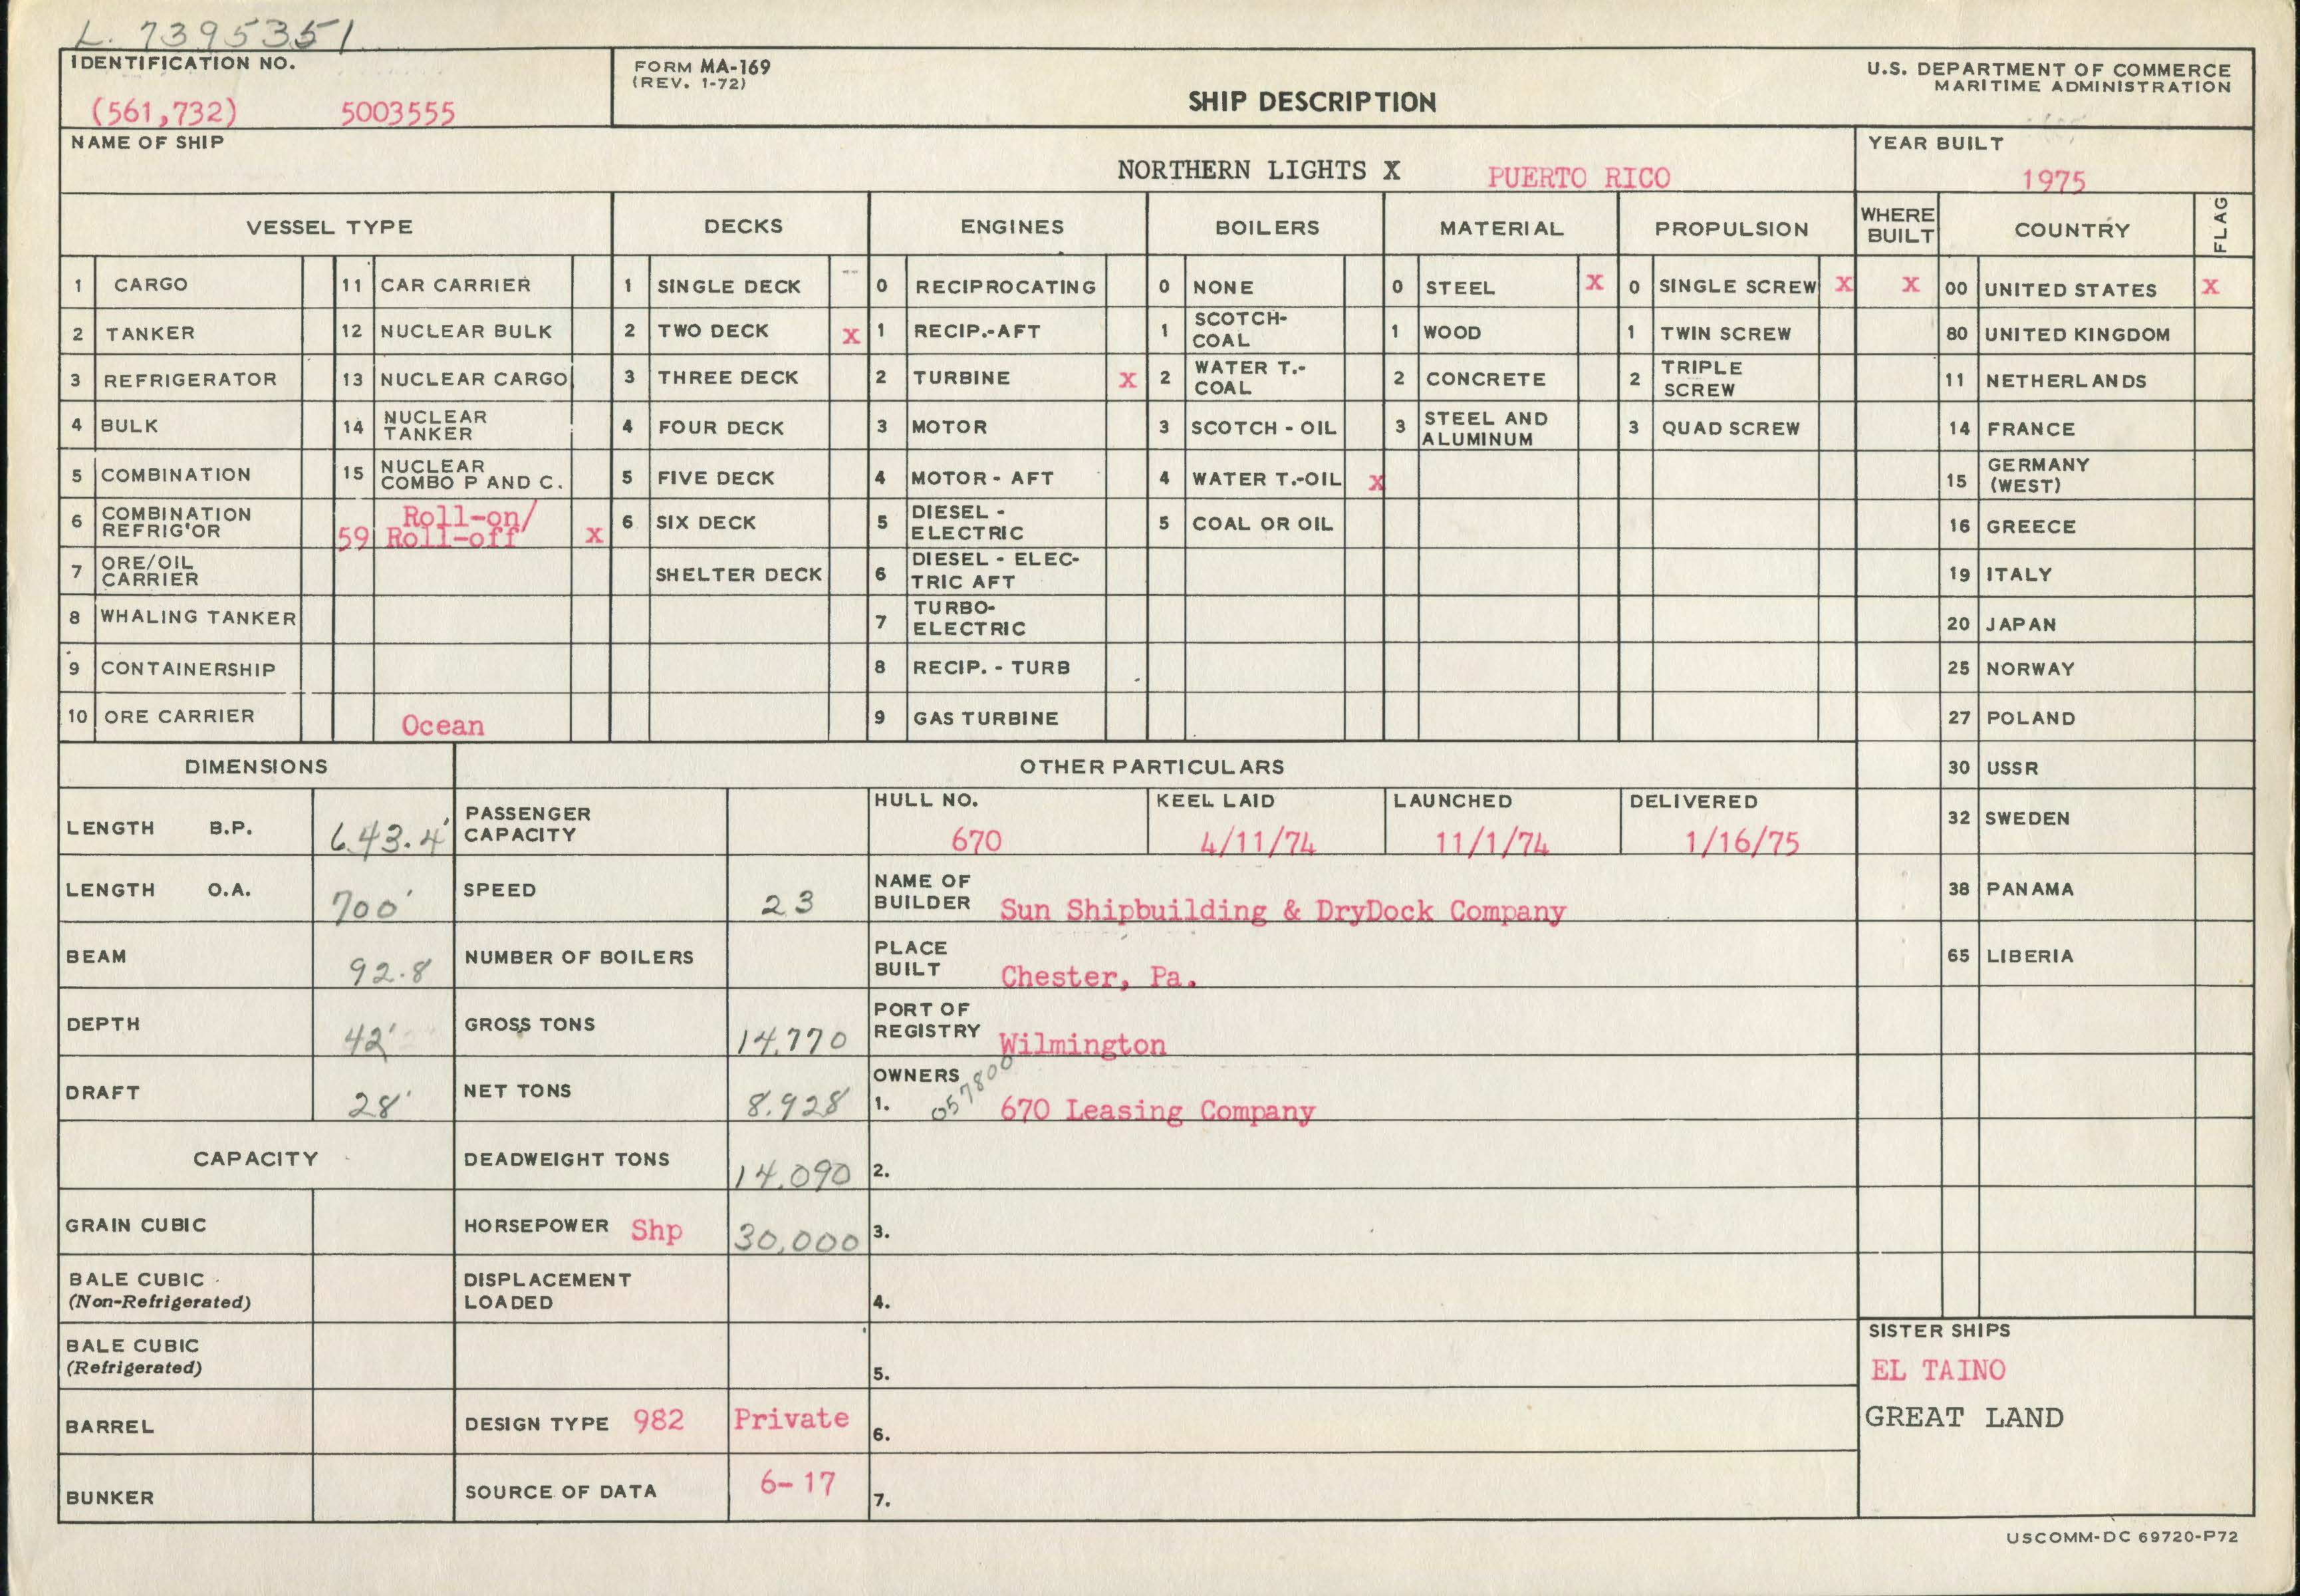 L. 7395351
IDENTIFICATION NO.
(561,732) 5003555
FORM MA-169
(REV. 1-72)
SHIP DESCRIPTION
U.S. DEPARTMENT OF COMMERCE
MARITIME ADMINISTRATION
NAME OF SHIP
NORTHERN LIGHTS X PUERTO RICO
YEAR BUILT
1975
VESSEL TYPE DECKS ENGINES BOILERS MATERIAL PROPULSION WHERE BUILT COUNTRY FLAG
1 CARGO 11 CAR CARRIER 1 SINGLE DECK -- 0 RECIPROCATING 0 NONE 0 STEEL X 0 SINGLE SCREW X X 00 UNITED STATES X
2 TANKER 12 NUCLEAR BULK 2 TWO DECK X 1 RECIP.-AFT 1 SCOTCH-COAL 1 WOOD 1 TWIN SCREW 80 UNITED KINGDOM
3 REFRIGERATOR 13 NUCLEAR CARGO 3 THREE DECK 2 TURBINE X 2 WATER T.-COAL 2 CONCRETE 2 TRIPLE SCREW 11 NETHERLANDS
4 BULK 14 NUCLEAR TANKER 4 FOUR DECK 3 MOTOR 3 SCOTCH - OIL 3 STEEL AND ALUMINUM 3 QUAD SCREW 14 FRANCE
5 COMBINATION 15 NUCLEAR COMBO P AND C. 5 FIVE DECK 4 MOTOR - AFT 4 WATER T.-OIL X 15 GERMANY (WEST)
6 COMBINATION REFRIG'OR 59 Roll-on/ Roll-off X 6 SIX DECK 5 DIESEL - ELECTRIC 5 COAL OR OIL 16 GREECE
7 ORE/OIL CARRIER SHELTER DECK 6 DIESEL - ELEC-TRIC AFT 19 ITALY
8 WHALING TANKER 7 TURBO-ELECTRIC 20 JAPAN
9 CONTAINERSHIP 8 RECIP. - TURB 25 NORWAY
10 ORE CARRIER Ocean 9 GAS TURBINE 27 POLAND
DIMENSIONS OTHER PARTICULARS 30 USSR
LENGTH B.P. 643.4' PASSENGER CAPACITY HULL NO. 670 KEEL LAID 4/11/74 LAUNCHED 11/1/74 DELIVERED 1/16/75 32 SWEDEN
LENGTH O.A. 700' SPEED 23 NAME OF BUILDER Sun Shipbuilding & DryDock Company 38 PANAMA
BEAM 92.8 NUMBER OF BOILERS PLACE BUILT Chester, Pa. 65 LIBERIA
DEPTH 42' GROSS TONS 14,770 PORT OF REGISTRY Wilmington
DRAFT 28' NET TONS 8,928 OWNERS 1. 057800 670 Leasing Company
CAPACITY DEADWEIGHT TONS 14,090 2.
GRAIN CUBIC HORSEPOWER Shp 30,000 3.
BALE CUBIC (Non-Refrigerated) DISPLACEMENT LOADED 4.
BALE CUBIC (Refrigerated) 5.
BARREL DESIGN TYPE 982 Private 6.
BUNKER SOURCE OF DATA 6-17 7.
SISTER SHIPS
EL TAINO
GREAT LAND
USCOMM-DC 69720-P72